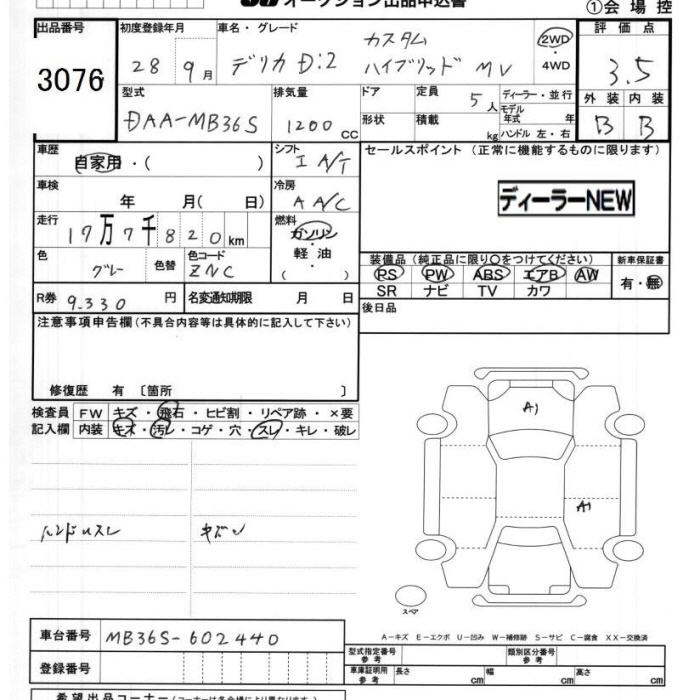 オークション出品申込書
①会場控
出品番号 初度登録年月 車名・グレード 評価点
3076 28 9月 デリカD:2 カスタム ハイブリッド MV 2WD・4WD 3.5
型式 排気量 ドア 定員 ディーラー・並行 外装 内装
DAA-MB36S 1200cc 5人 モデル年式 年 B B
形状 積載 kg ハンドル 左・右
車歴 自家用・( ) シフト I A/T セールスポイント (正常に機能するものに限ります)
車検 年 月( 日) 冷房 A A/C ディーラーNEW
走行 17万7千820km 燃料 ガソリン・軽油・( )
色 グレー 色替 色コード ZNC 装備品 (純正品に限り〇をつけてください) 新車保証書
PS PW ABS エアB AW 有・無
SR ナビ TV カワ
R券 9.330円 名変通知期限 月 日 後日品
注意事項申告欄(不具合内容等は具体的に記入して下さい)
修復歴 有 〔箇所 〕
検査員 FW キズ・飛石・ヒビ割・リペア跡・×要
記入欄 内装 キズ・汚レ・コゲ・穴・スレ・キレ・破レ
A1
A1
ハンドルスレ
スペア
車台番号 MB36S-602440
A-キズ E-エクボ U-凹み W-補修跡 S-サビ C-腐食 XX-交換済
登録番号 型式指定番号 参考 類別区分番号 参考
車庫証明用 参考 長さ cm 幅 cm 高さ cm
希望出品コーナー(コーナーは各会場により異なります)